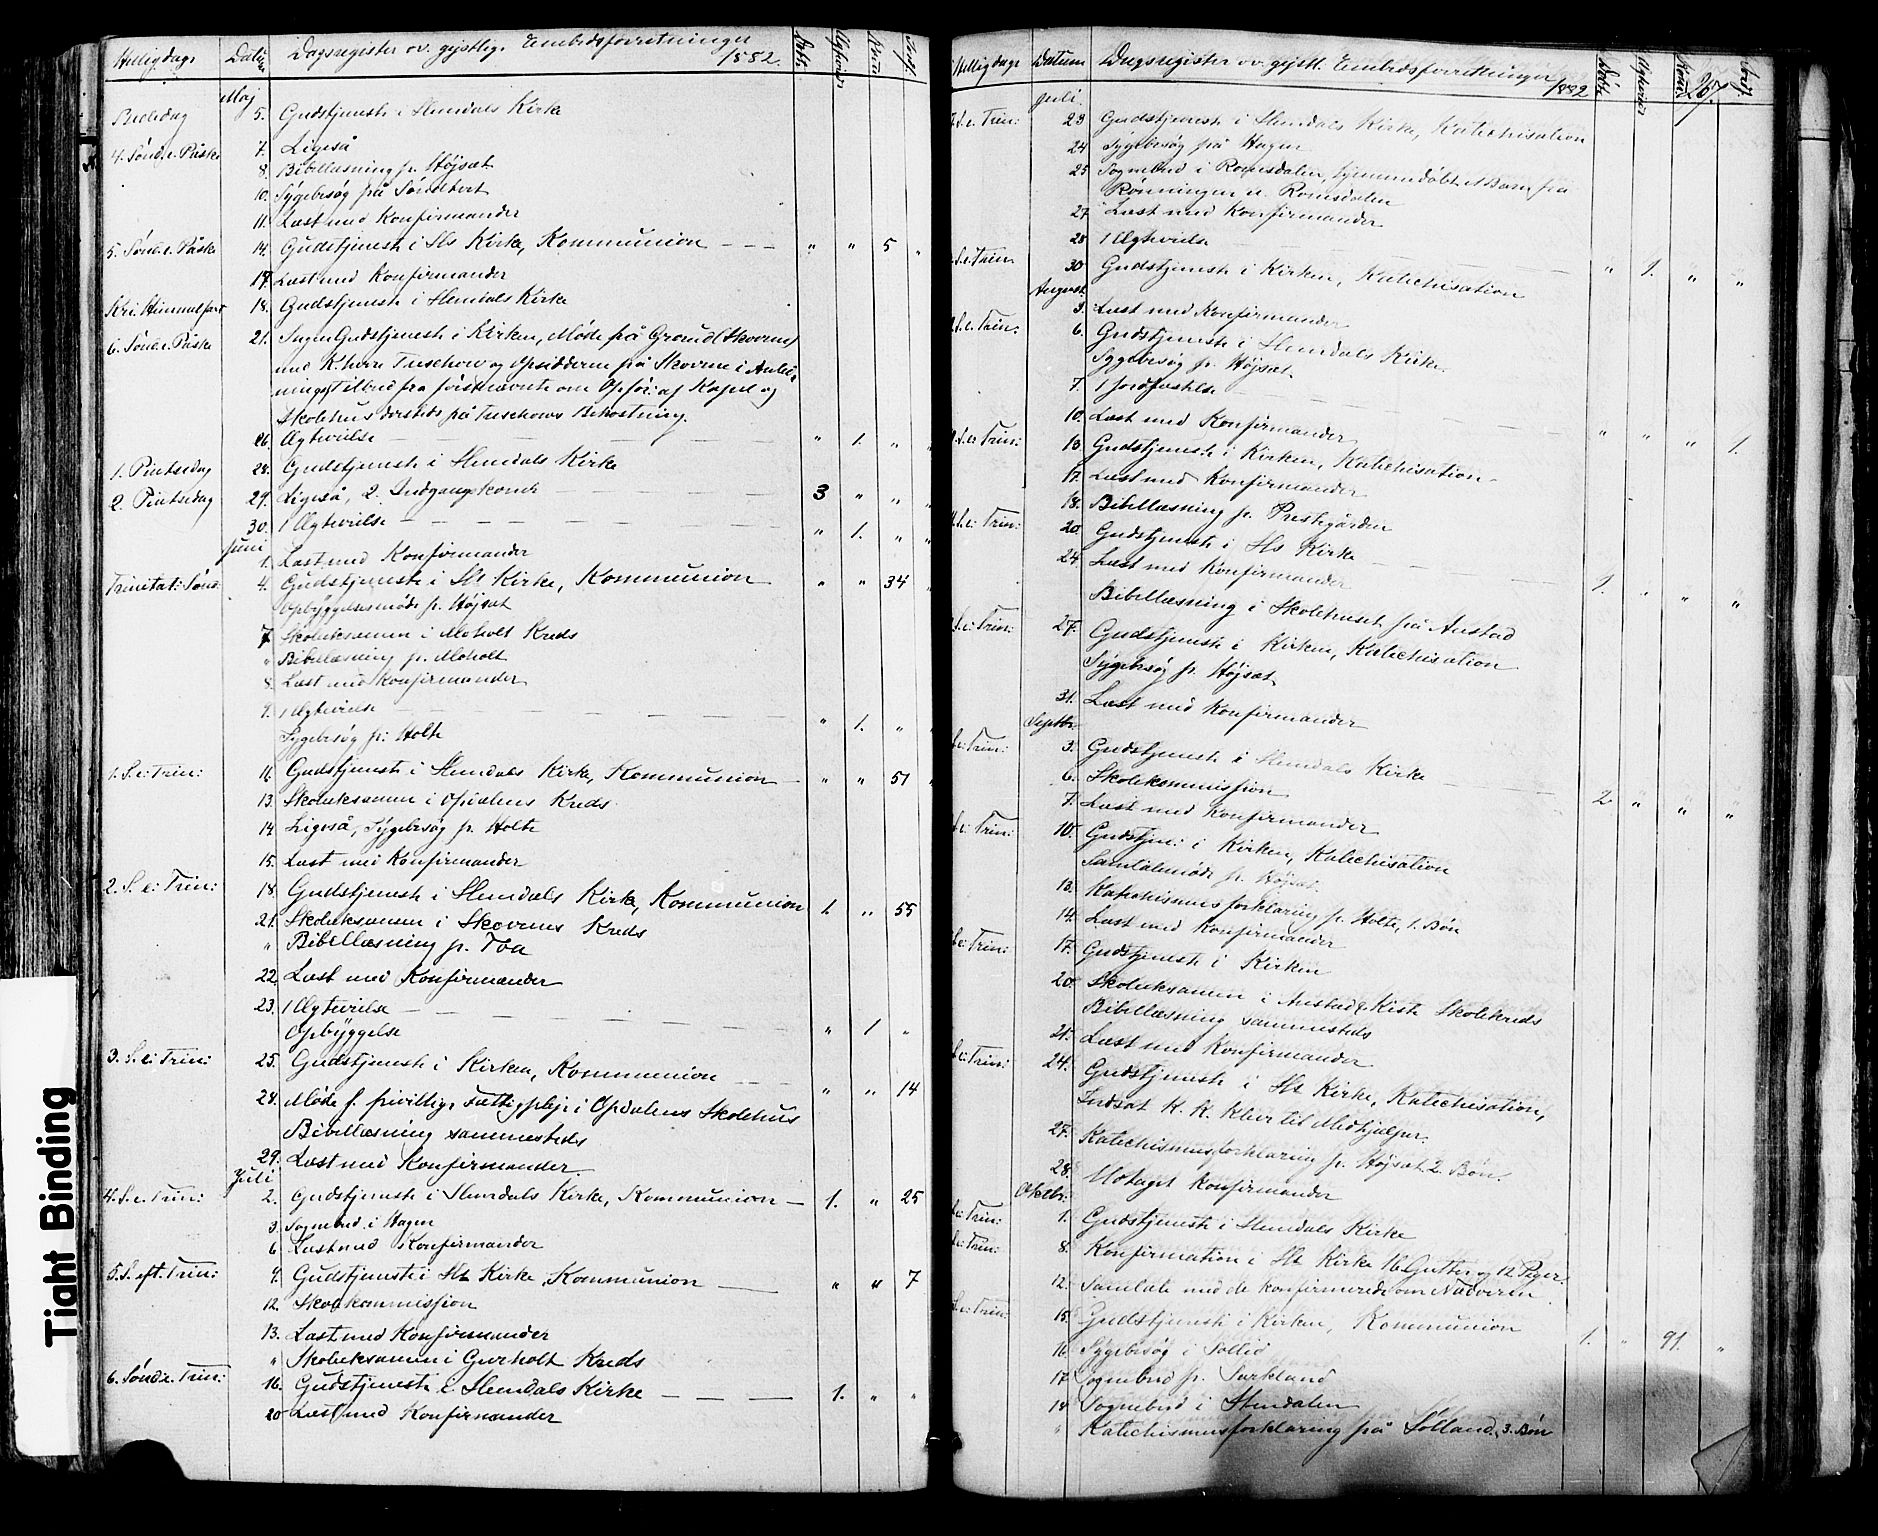 Helligdag. Datum Dagsregister ov. gejstlige Embedsforretninger 1882. Døbte Ægteviede Konf. Jordf.
Maj
Bededag 5. Gudstjeneste i Hemdals Kirke
4. Sønd. e. Påske 7. Ligeså
8. Bibellæsning p. Højsæt
10. Sygebesøg på
11. Læst med Konfirmander
5. Sønd. e. Påske 14. Gudstjeneste i Hs Kirke, Kommunion — — — " " 5 "
17. Læst med Konfirmander
Kri. Himmelfart 18. Gudstjeneste i Hemdals Kirke
6. Sønd. e. Påske 21. Ingen Gudstjeneste i Kirken, Møde på Grorud (Skoverne)
med K.herre Treschow og Opsidderne på Skovene i Anled-
nings Tilbud fra førstnævnte om Opfør: af Kapel og
Skolehus dersteds på Treschows Bekostning.
26. Ægtevielse — — — — " 1. " "
1. Pintsedag 28. Gudstjeneste i Hemdals Kirke
2. Pintsedag 29. Ligeså, 2. Indgangskoner — — — 3 " " "
30. 1 Ægtevielse — — — — " 1. " "
Juni
1. Læst med Konfirmander
Trinitat: Sønd. 4. Gudstjeneste i Hs Kirke, Kommunion " " 34 "
Opbyggelsesmøde p. Højsæt
7. Skoleeksamen i Moholt Kreds
" Bibellæsning p. Moholt
8. Læst med Konfirmander
9. 1 Ægtevielse — — — — " 1. " "
Sygebesøg p: Holte
1. S. e: Trin: 11. Gudstjeneste i Hemdals Kirke, Kommunion — " " 51 "
13. Skoleeksamen i Opdalens Kreds
14. Ligeså, Sygebesøg p. Holte
15. Læst med Konfirmander
2. S. e: Trin: 18. Gudstjeneste i Hemdals Kirke, Kommunion 1 " 55
21. Skoleeksamen i Skovenes Kreds
" Bibellæsning p. Toa
22. Læst med Konfirmander
23. 1 Ægtevielse — — — — " 1 "
Opbyggelse
3. S. e: Trin: 25. Gudstjeneste i Kirken, Kommunion — — " " 14
28. Møde f. frivillig Fattigpleje i Opdalens Skolehus
Bibellæsning sammesteds
29. Læst med Konfirmander.
Juli
4. S. e. Trin: 2. Gudstjeneste i Hemdals Kirke, Kommunion — 1. " 25
3. Sognebud i Hagen
6 Læst med Konfirmander
5. S. eft. Trin: 9. Gudstjeneste i Hs Kirke, Kommunion — " " 7
12. Skolekommission
13. Læst med Konfirmander
" Skoleeksamen i Gurholt Kreds
6. Sønd. e. Trin: 16. Gudstjeneste i Hemdals Kirke — — — 1. " "
20 Læst med Konfirmander
Tight Binding
Helligdage Datum Dagsregister ov. gejstl. Embedsforretninger 1882 Døbte Ægteviede Konf. Jordf.
267.
Juli.
S. e. Trin: 23 Gudstjeneste i Hemdals Kirke, Katechisation
24 Sygebesøg på Hagen
25 Sognebud i Romsdalen, hjemmedøbt et Barn fra
Rønningen u. Romsdalen
27 Læst med Konfirmander
28 1 Ægtevielse — " 1. " "
S. e. Trin. 30 Gudstjeneste i Kirken, Katechisation
August.
3. Læst med Konfirmander
S. e. Trin: 6. Gudstjeneste i Hemdals Kirke.
Sygebesøg p. Højsæt.
7. 1 Jordfæstelse — " " " 1.
10. Læst med Konfirmander
S. e. Trin: 13. Gudstjeneste i Kirken, Katechisation
17. Læst med Konfirmander
18. Bibellæsning p. Prestegården
S. e: Trin: 20. Gudstjeneste i Hs Kirke — — — 1. " " "
24. Læst med Konfirmander
Bibellæsning i Skolehuset på Anstad
S. e: Trin: 27. Gudstjeneste i Kirken, Katechisation
Sygebesøg p. Højsæt
31. Læst med Konfirmander
Septbr.
e: Trin: 3. Gudstjeneste i Hemdals Kirke — — — 2 " " "
6. Skolekommission
7. Læst med Konfirmander
e: Trin: 10. Gudstjen: i Kirken, Katechisation
Samtalemøde p. Højsæt.
13. Katechismusforklaring p. Holte, 1. Bøn
14. Læst med Konfirmander
e: Trin: 17. Gudstjeneste i Kirken
20. Skoleeksamen i Anstad & Kiste Skolekreds
Bibellæsning sammesteds
21. Læst med Konfirmander
e: Trin: 24. Gudstjeneste i Hs Kirke, Katechisation,
Indsat K. K. til Medhjælper.
27. Katechismusforklaring p. Højsæt 2. Bøn.
28. Modtaget Konfirmander
Oktbr.
e: Trin: 1. Gudstjeneste i Hemdals Kirke
e: Trin: 8. Konfirmation i Hs Kirke 16 Gutter og 12 Piger
12. Samtale med de konfirmerede om Nadveren
S. e: Trin: 15. Gudstjeneste i Kirken, Kommunion 1. " 91. "
16 Sygebesøg i Sollid
17. Sognebud p.
18 Sognebud i Hemdalen
" Katechismusforklaring på Solland, 3. Bøn